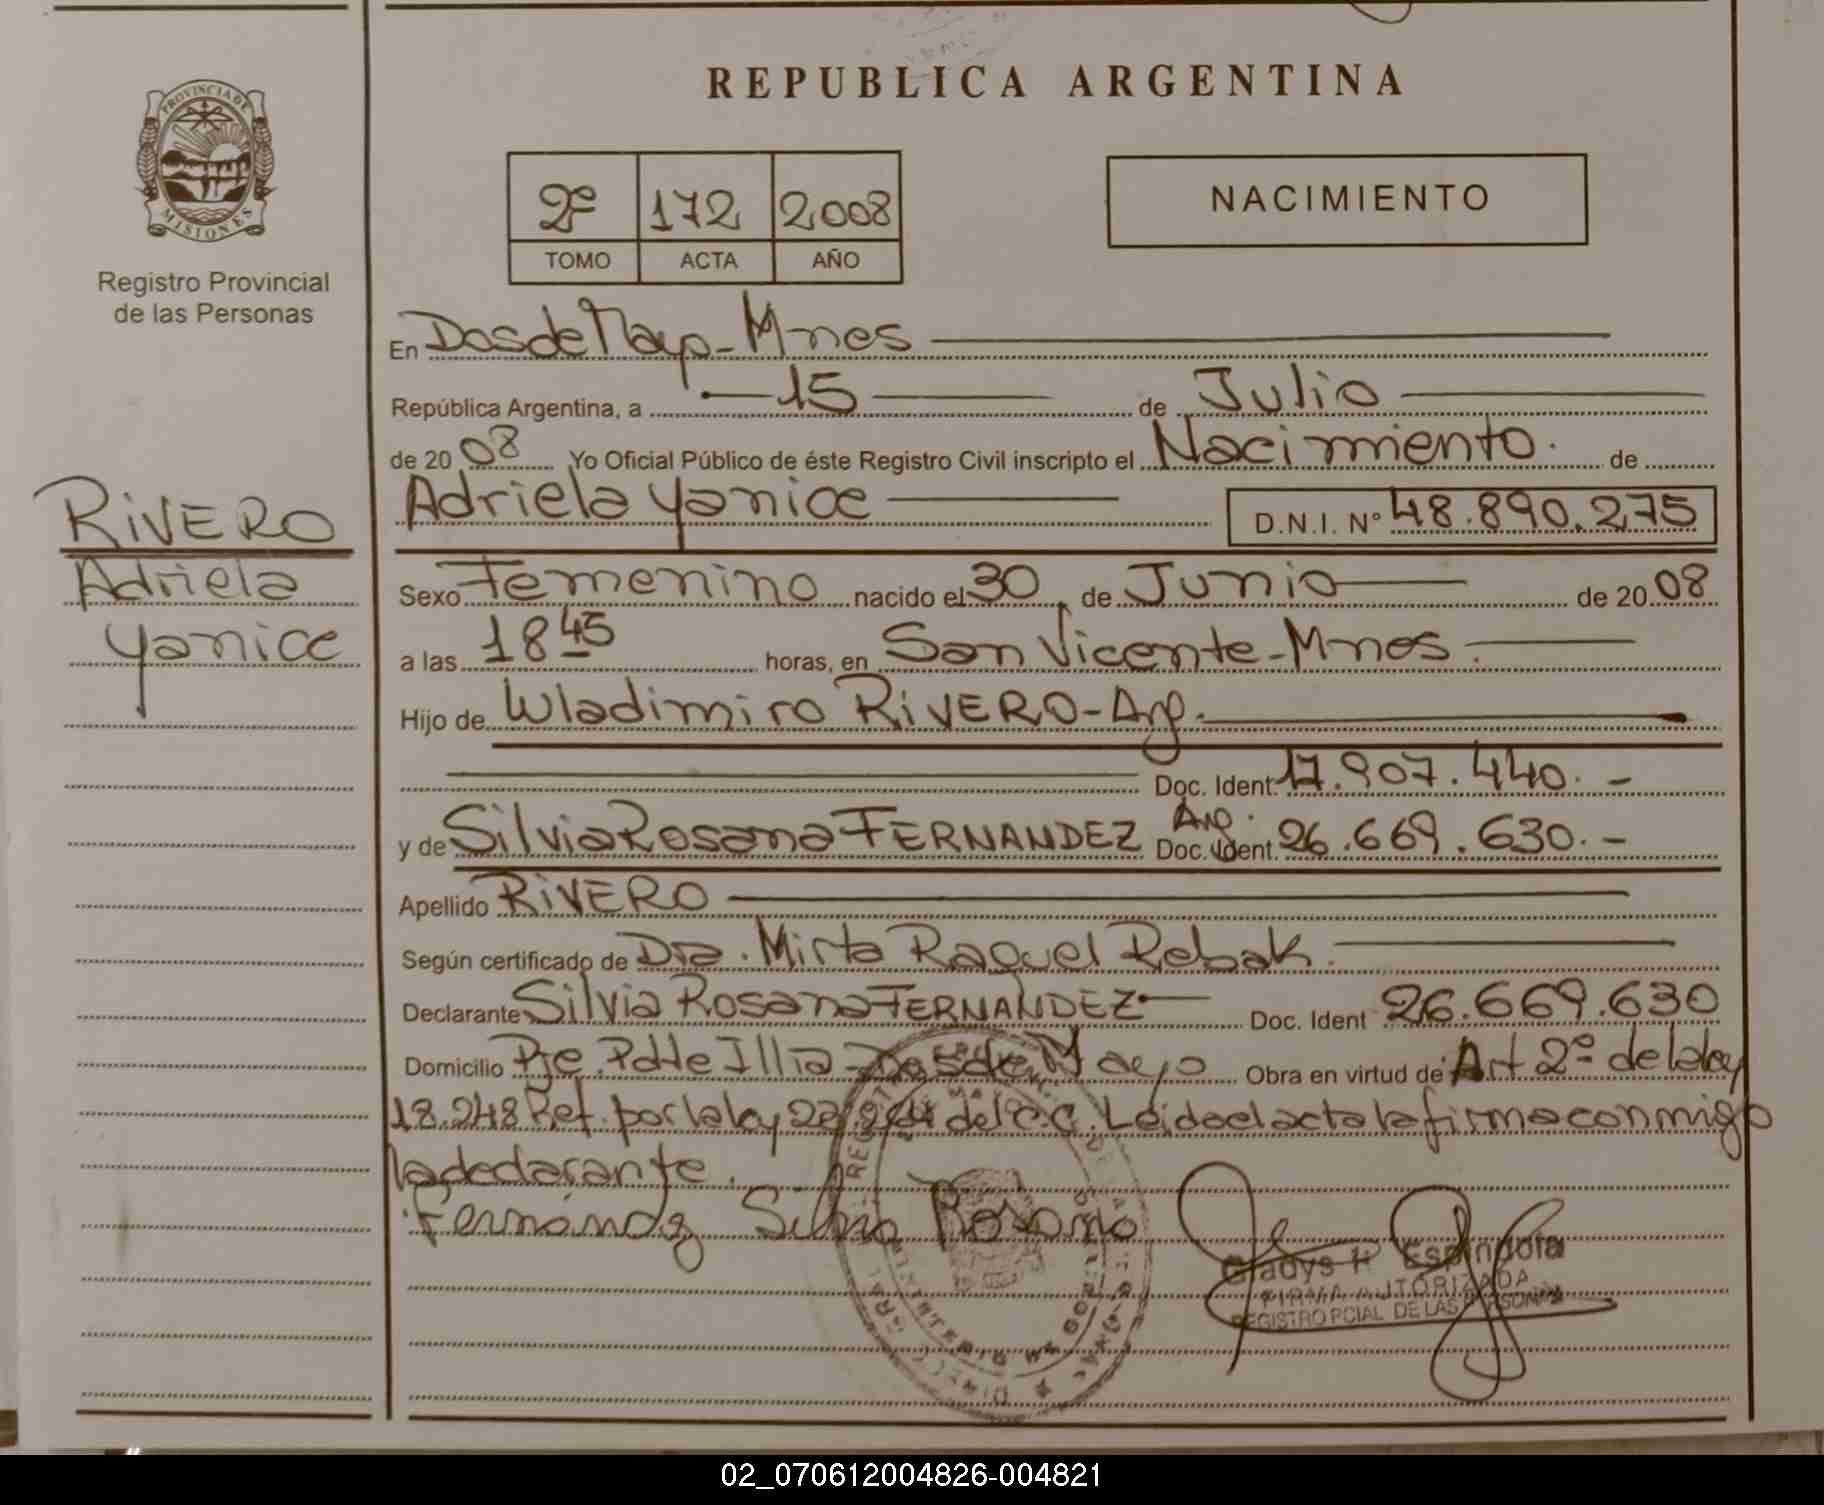 REPUBLICA ARGENTINA
PROVINCIA DE
MISIONES
Registro Provincial
de las Personas
2º 172 2008
TOMO ACTA AÑO
NACIMIENTO
En Dos de Mayo - Mnes
República Argentina, a 15 de Julio
de 20 08 Yo Oficial Público de éste Registro Civil inscripto el Nacimiento. de
RIVERO
Adriela
Yanice
Adriela Yanice D.N.I. Nº 48.890.275
Sexo Femenino nacido el 30 de Junio de 20 08
a las 18 45 horas, en San Vicente - Mnes.
Hijo de Wladimiro RIVERO - Arg.
Doc. Ident. 17.907.440. -
y de Silvia Rosana FERNANDEZ Arg. Doc. Ident. 26.669.630. -
Apellido RIVERO
Según certificado de Dra. Mirta Raquel Rebak.
Declarante Silvia Rosana FERNANDEZ Doc. Ident 26.669.630
Domicilio Pje. Pdte Illia - Dos de Mayo Obra en virtud de Art 2º de la ley
18.248 Ref. por la ley 23.264 del C.C. Leida el acta la firma conmigo
la declarante.
Fernández Silvia Rosana
Gladys H. Espindola
FIRMA AUTORIZADA
REGISTRO PCIAL. DE LAS PERSONAS
02_070612004826-004821